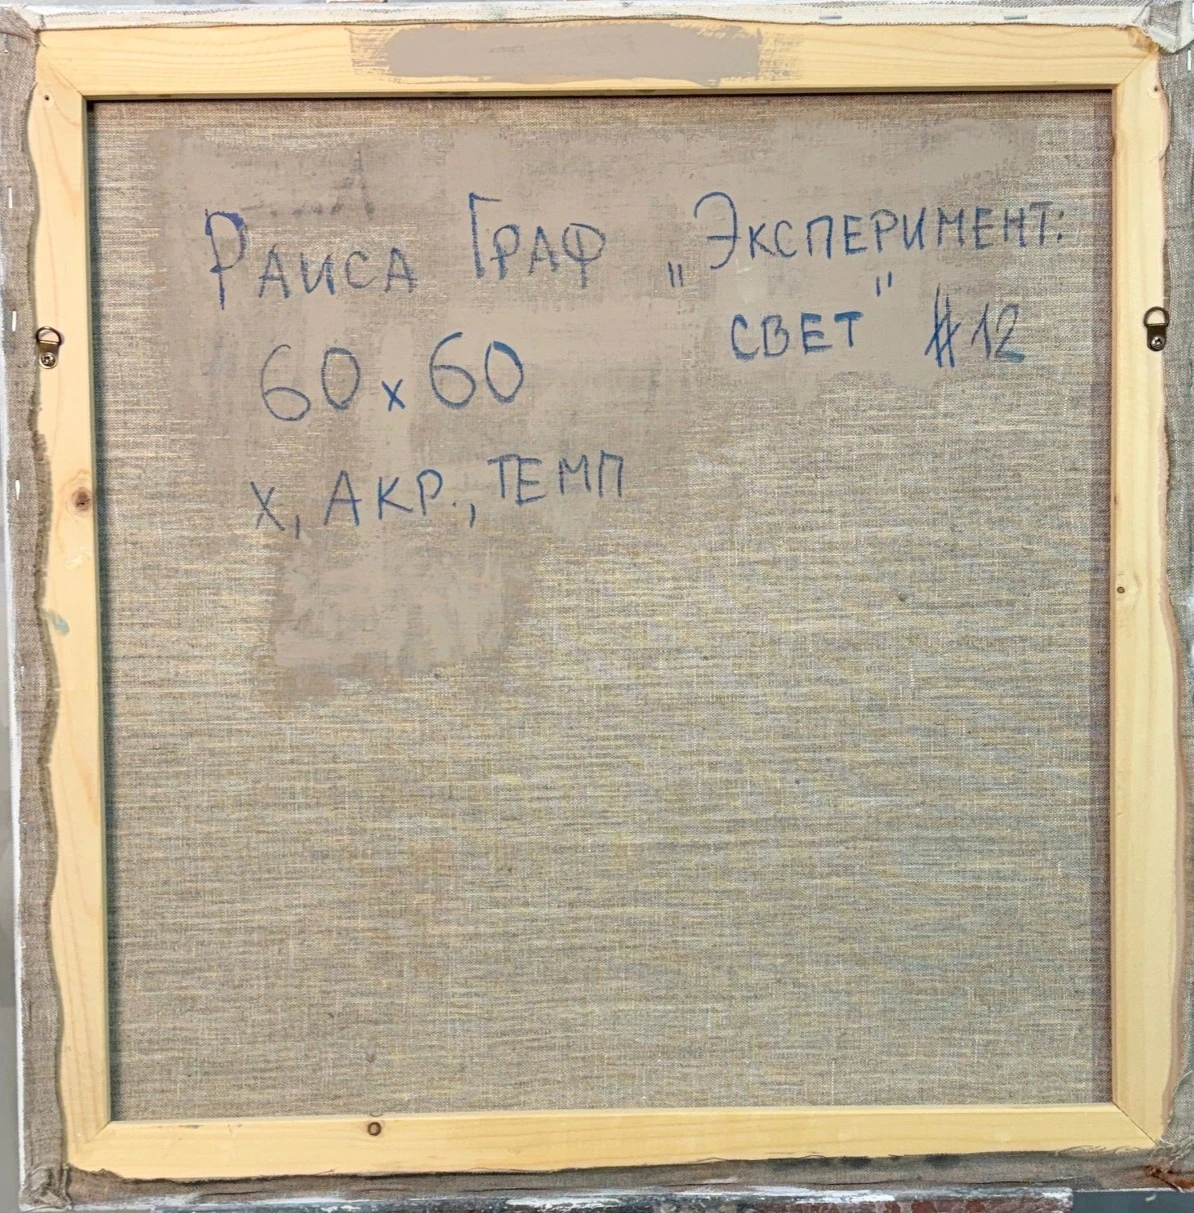 Раиса Граф „Эксперимент:
свет" #12
60 x 60
х, АКР., ТЕМП